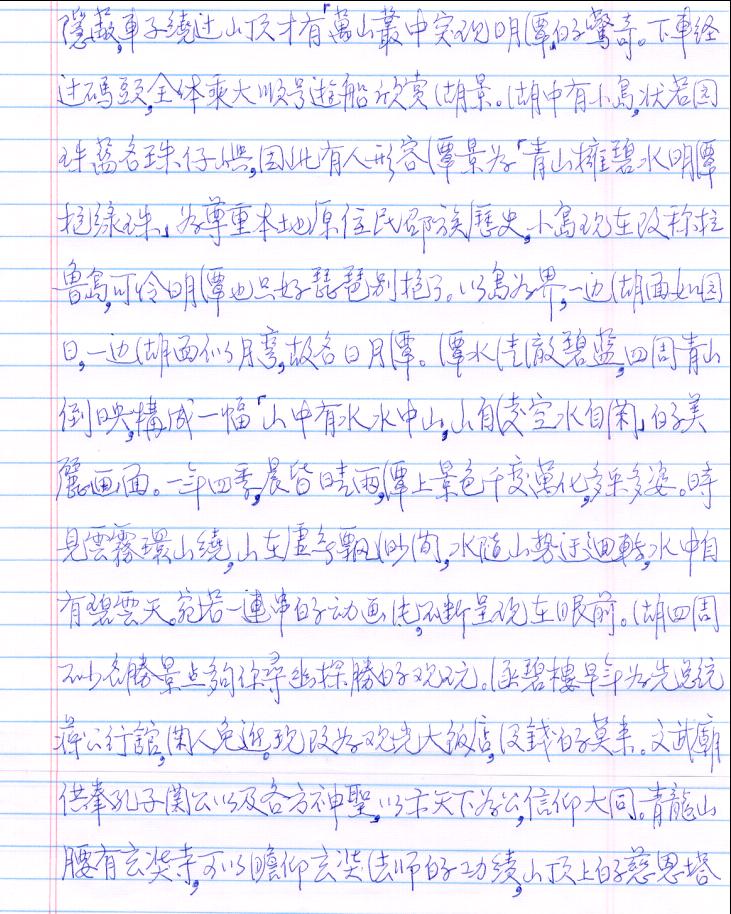 隱蔽,車子繞过山顶才有「萬山叢中突現明潭」的驚奇。下車经
过碼頭,全体乘大順号遊船欣赏湖景。湖中有小島,状若圆
珠舊名珠仔嶼,因此有人形容潭景为「青山擁碧水明潭
抱绿珠」为尊重本地原住民邵族歷史,小島现在改称拉
魯島,可怜明潭也只好琵琶别抱了。以島为界,一边湖面如圆
日,一边湖面似月弯,故名日月潭。潭水清澈碧蓝,四周青山
倒映,構成一幅「山中有水水中山,山自凌空水自闲」的美
麗画面。一年四季,晨昏晴雨,潭上景色千变萬化,多采多姿。時
見雲霧環山繞,山在虛無飄渺间,水随山勢迂迴轉,水中自
有碧雲天。宛若一連串的动画片,不断呈现在眼前。湖四周
不少名勝景点夠你尋幽探勝的观玩。涵碧樓早年为先总统
蒋公行館,闲人免進。现改为观光大饭店,没錢的莫来。文武廟
供奉孔子関公以及各方神聖,以示天下为公,信仰大同。青龍山
腰有玄奘寺,可以瞻仰玄奘法師的功績,山顶上的慈恩塔